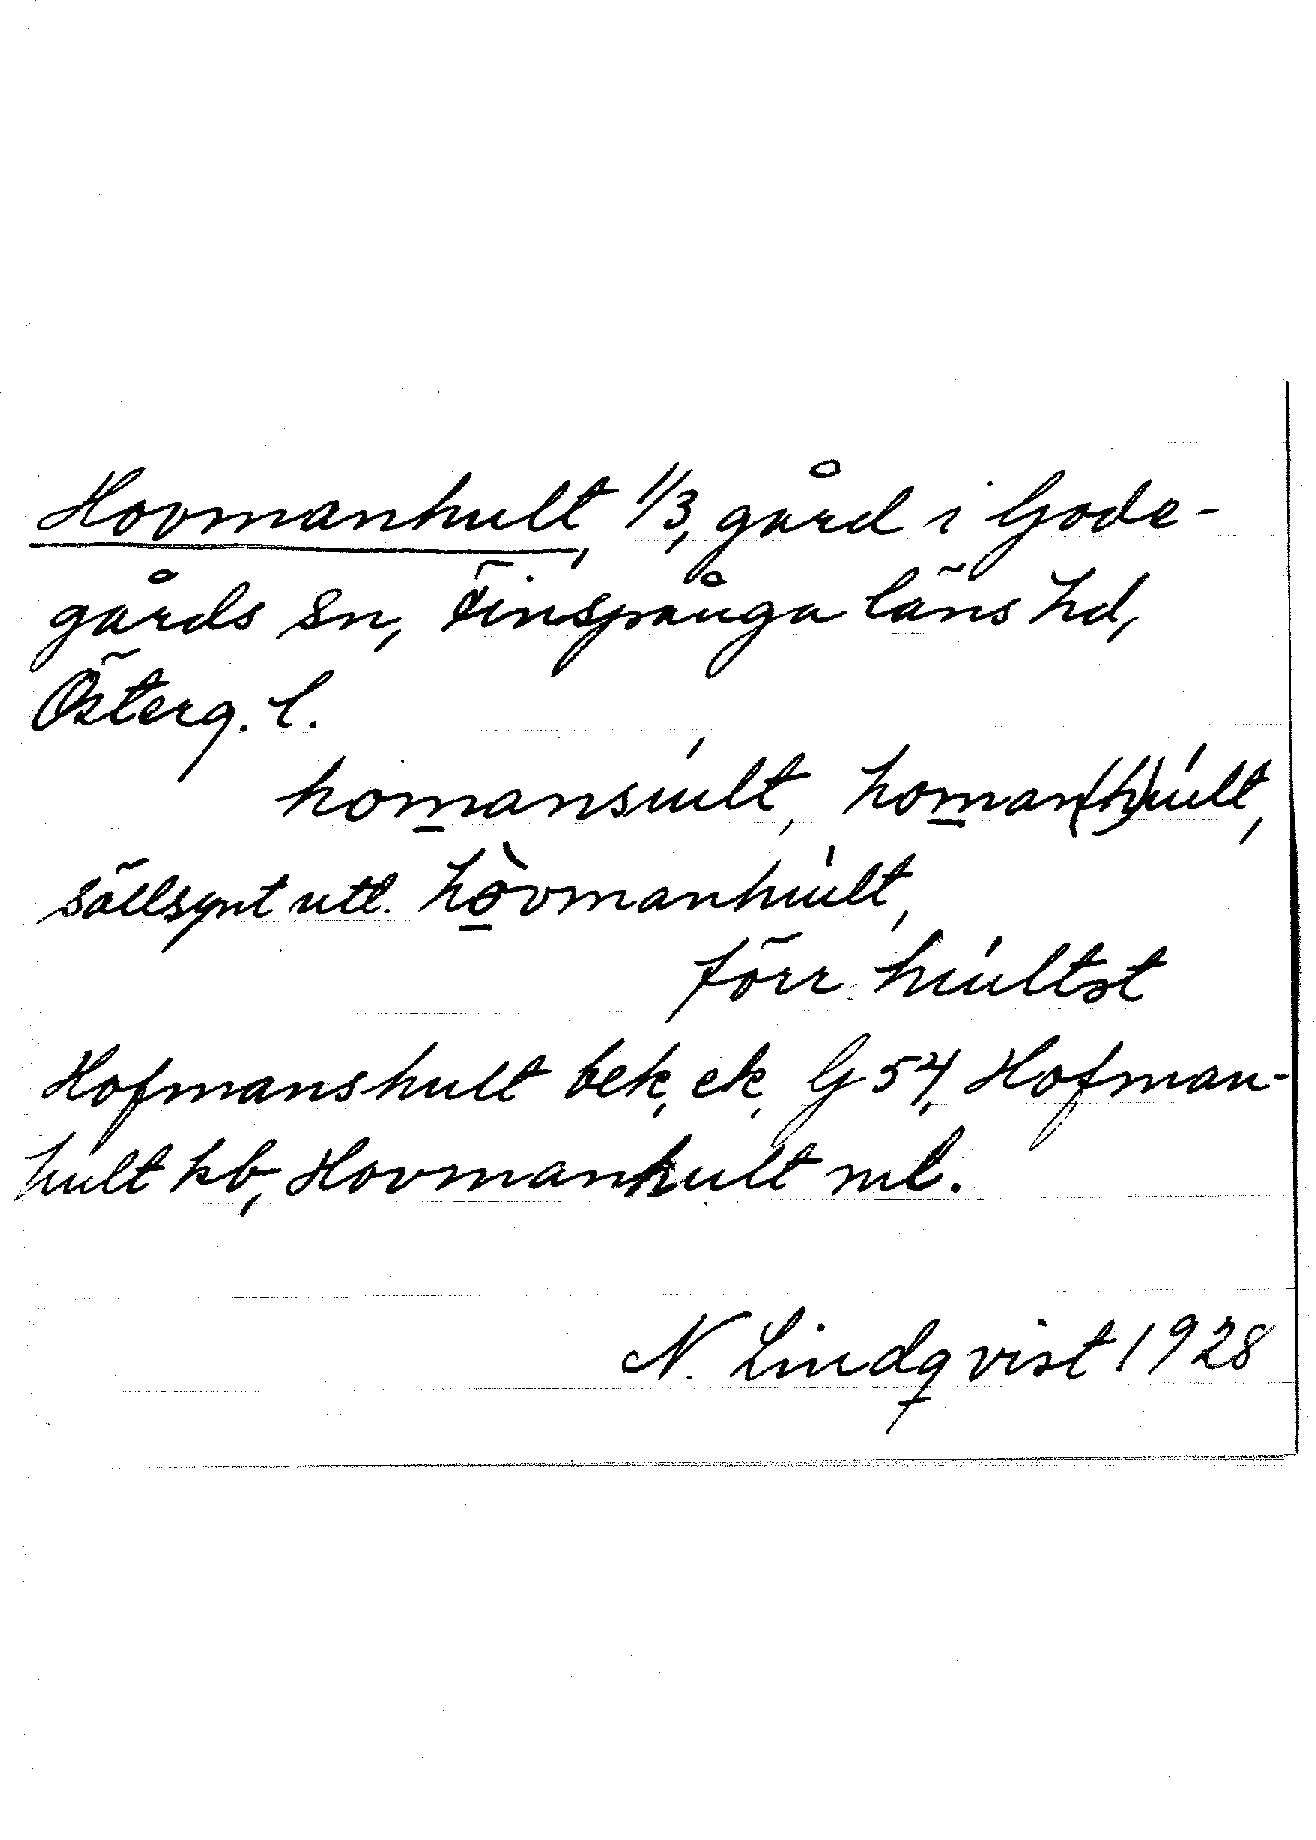 Hovmanhult, 1/3, gård i Gode-
gårds sn, Finspånga läns hd,
Österg. l.
homansúlt, homan(h)últ,
sällsynt utt. hòvmanhúlt,
förr húltst
Hofmanshult bek, ek, G 54, Hofman-
hult kb, Hovmanhult ml.
N. Lindqvist 1928